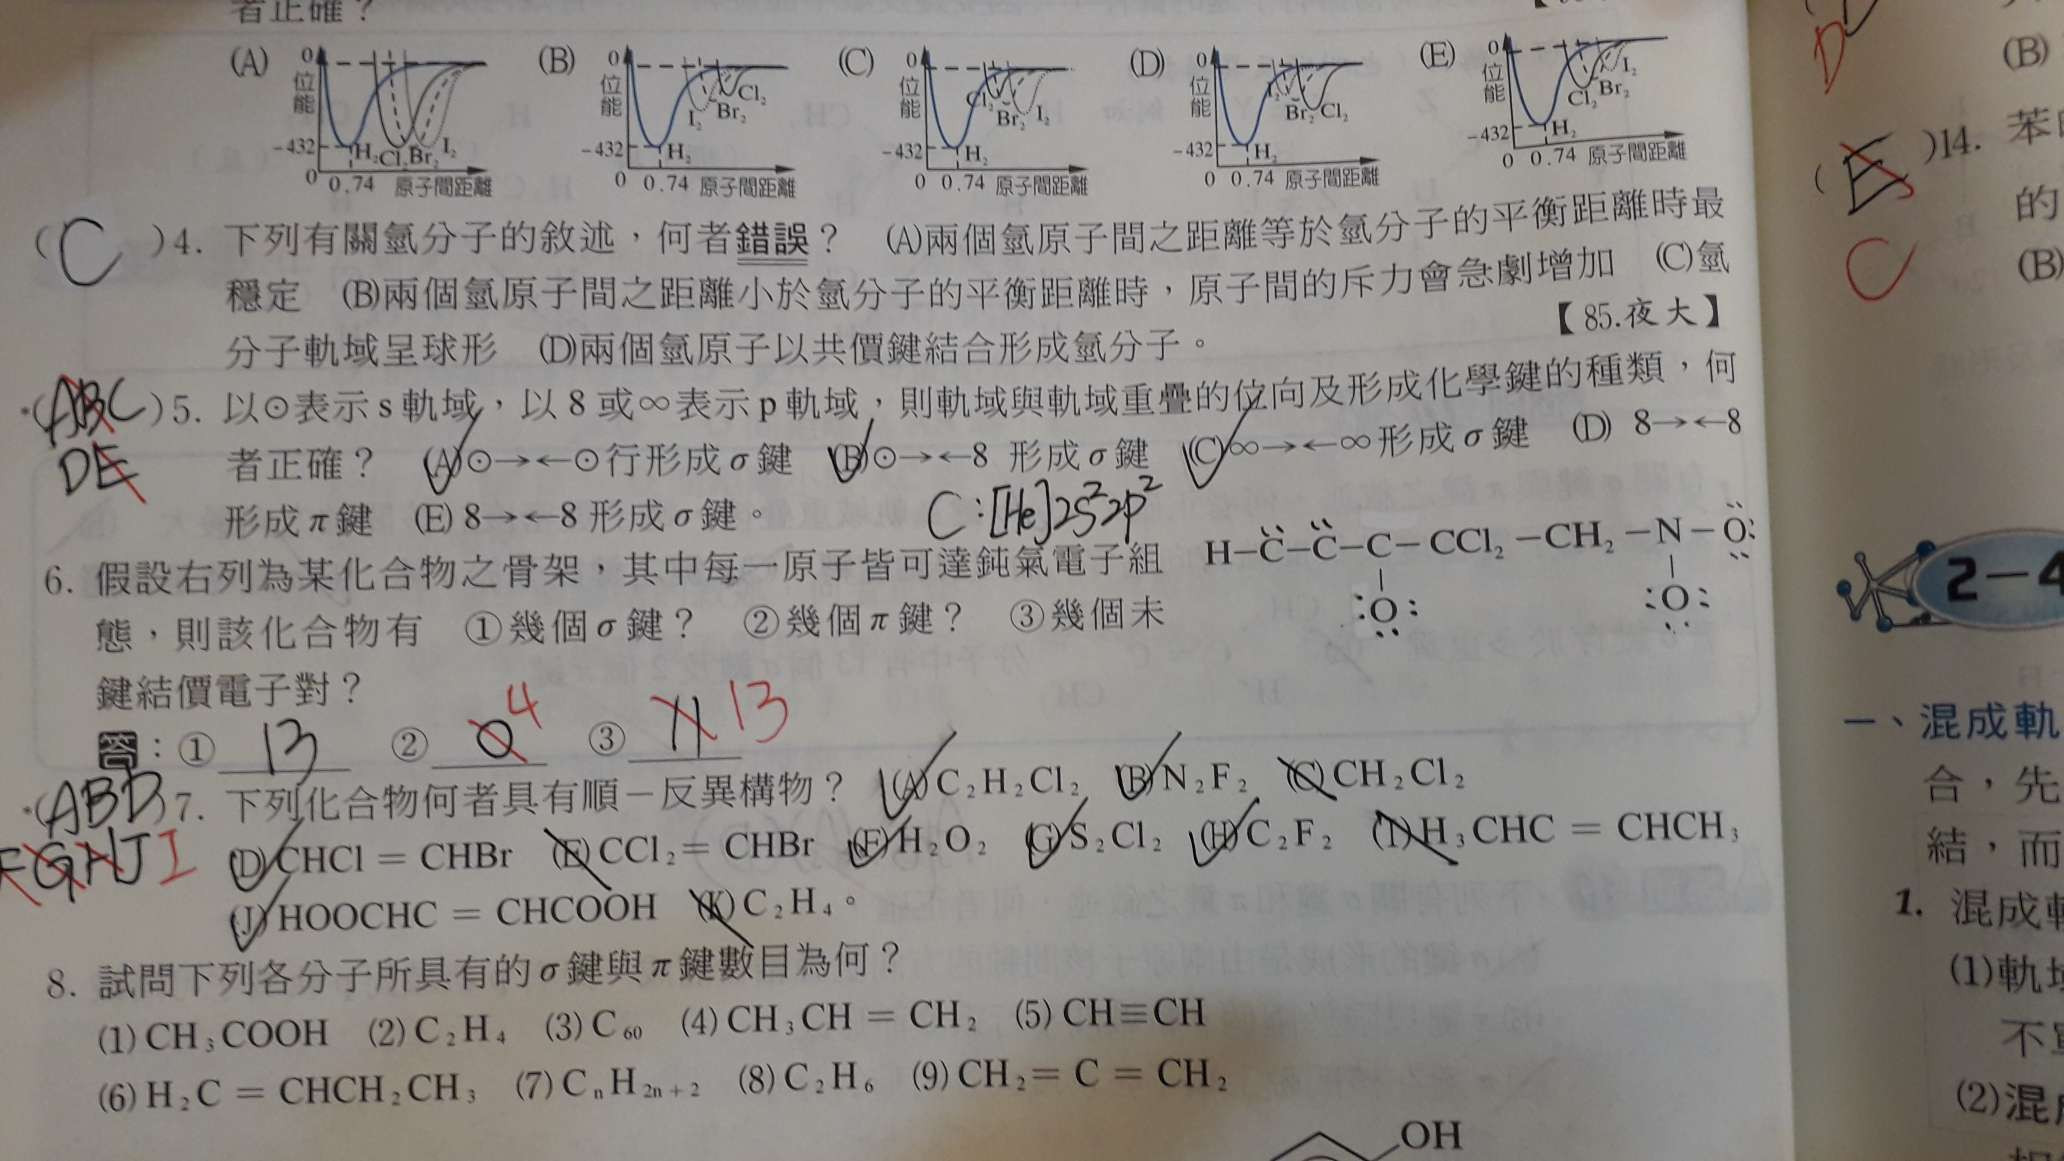 者正確？
(A) 0 位能 -432 H₂ Cl₂ Br₂ I₂ 0 0.74 原子間距離
(B) 0 位能 -432 I₂ Br₂ Cl₂ H₂ 0 0.74 原子間距離
(C) 0 位能 -432 Cl₂ Br₂ I₂ H₂ 0 0.74 原子間距離
(D) 0 位能 -432 I₂ Br₂ Cl₂ H₂ 0 0.74 原子間距離
(E) 0 位能 -432 Cl₂ Br₂ I₂ H₂ 0 0.74 原子間距離
( C )4. 下列有關氫分子的敘述，何者錯誤？ (A)兩個氫原子間之距離等於氫分子的平衡距離時最
穩定 (B)兩個氫原子間之距離小於氫分子的平衡距離時，原子間的斥力會急劇增加 (C)氫
分子軌域呈球形 (D)兩個氫原子以共價鍵結合形成氫分子。
【85.夜大】
·(ABC )5. 以⊙表示s軌域，以8或∞表示p軌域，則軌域與軌域重疊的位向及形成化學鍵的種類，何
DE 者正確？ (A)⊙→←⊙行形成σ鍵 (B)⊙→←8 形成σ鍵 (C)∞→←∞形成σ鍵 (D) 8→←8
形成π鍵 (E) 8→←8形成σ鍵。
C:[He]2s²2p²
6. 假設右列為某化合物之骨架，其中每一原子皆可達鈍氣電子組
態，則該化合物有 ①幾個σ鍵？ ②幾個π鍵？ ③幾個未
鍵結價電子對？
H-C-C-C-CCl₂-CH₂-N-O:
:O: :O:
答：① 13 ② 0 4 ③ 11 13
·(ABD)7. 下列化合物何者具有順－反異構物？ (A)C₂H₂Cl₂ (B)N₂F₂ (C)CH₂Cl₂
FGHJ I (D)CHCl = CHBr (E)CCl₂= CHBr (F)H₂O₂ (G)S₂Cl₂ (H)C₂F₂ (I)H₃CHC = CHCH₃
(J)HOOCHC = CHCOOH (K)C₂H₄。
8. 試問下列各分子所具有的σ鍵與π鍵數目為何？
(1)CH₃COOH (2)C₂H₄ (3)C₆₀ (4)CH₃CH = CH₂ (5)CH≡CH
(6)H₂C = CHCH₂CH₃ (7)CₙH₂ₙ₊₂ (8)C₂H₆ (9)CH₂= C = CH₂
OH
D
(B)
( E )14. 苯
C
的
(B)
2-4
一、混成軌
合，先
結，而
1. 混成
(1)軌域
不
(2)混成